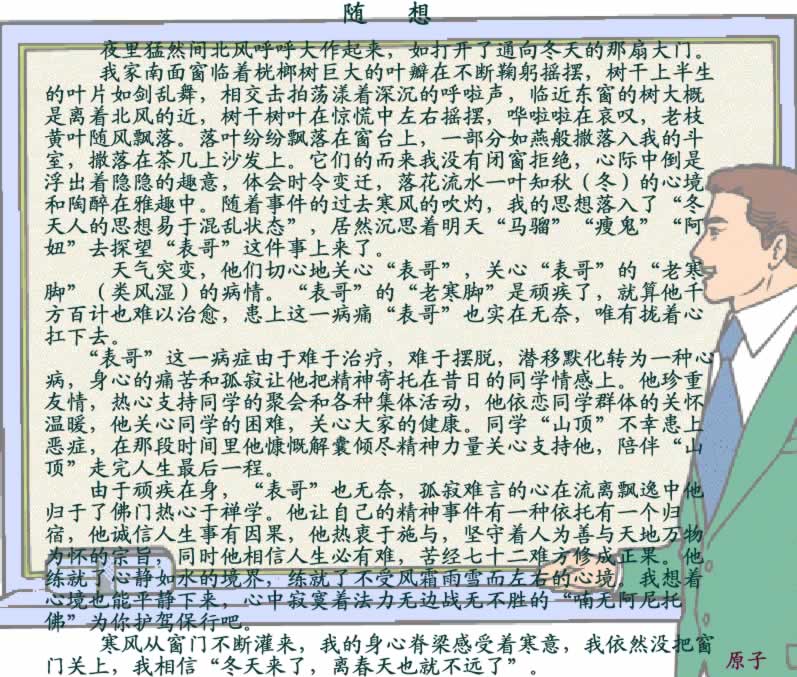 随 想
夜里猛然间北风呼呼大作起来，如打开了通向冬天的那扇大门。
我家南面窗临着桄榔树巨大的叶瓣在不断鞠躬摇摆，树干上半生
的叶片如剑乱舞，相交击拍荡漾着深沉的呼啦声，临近东窗的树大概
是离着北风的近，树干树叶在惊慌中左右摇摆，哗啦啦在哀叹，老枝
黄叶随风飘落。落叶纷纷飘落在窗台上，一部分如燕般撒落入我的斗
室，撒落在茶几上沙发上。它们的而来我没有闭窗拒绝，心际中倒是
浮出着隐隐的趣意，体会时令变迁，落花流水一叶知秋（冬）的心境
和陶醉在雅趣中。随着事件的过去寒风的吹灼，我的思想落入了“冬
天人的思想易于混乱状态”，居然沉思着明天“马骝”“瘦鬼”“阿
妞”去探望“表哥”这件事上来了。
天气突变，他们切心地关心“表哥”，关心“表哥”的“老寒
脚”（类风湿）的病情。“表哥”的“老寒脚”是顽疾了，就算他千
方百计也难以治愈，患上这一病痛“表哥”也实在无奈，唯有拢着心
扛下去。
“表哥”这一病症由于难于治疗，难于摆脱，潜移默化转为一种心
病，身心的痛苦和孤寂让他把精神寄托在昔日的同学情感上。他珍重
友情，热心支持同学的聚会和各种集体活动，他依恋同学群体的关怀
温暖，他关心同学的困难，关心大家的健康。同学“山顶”不幸患上
恶症，在那段时间里他慷慨解囊倾尽精神力量关心支持他，陪伴“山
顶”走完人生最后一程。
由于顽疾在身，“表哥”也无奈，孤寂难言的心在流离飘逸中他
归于了佛门热心于禅学。他让自己的精神事件有一种依托有一个归
宿，他诚信人生事有因果，他热衷于施与，坚守着人为善与天地万物
为怀的宗旨，同时他相信人生必有难，苦经七十二难方修成正果。他
练就了心静如水的境界，练就了不受风霜雨雪而左右的心境。我想着
心境也能平静下来，心中寂寞着法力无边战无不胜的“喃无阿尼托
佛”为你护驾保行吧。
寒风从窗门不断灌来，我的身心脊梁感受着寒意，我依然没把窗
门关上，我相信“冬天来了，离春天也就不远了”。
原子